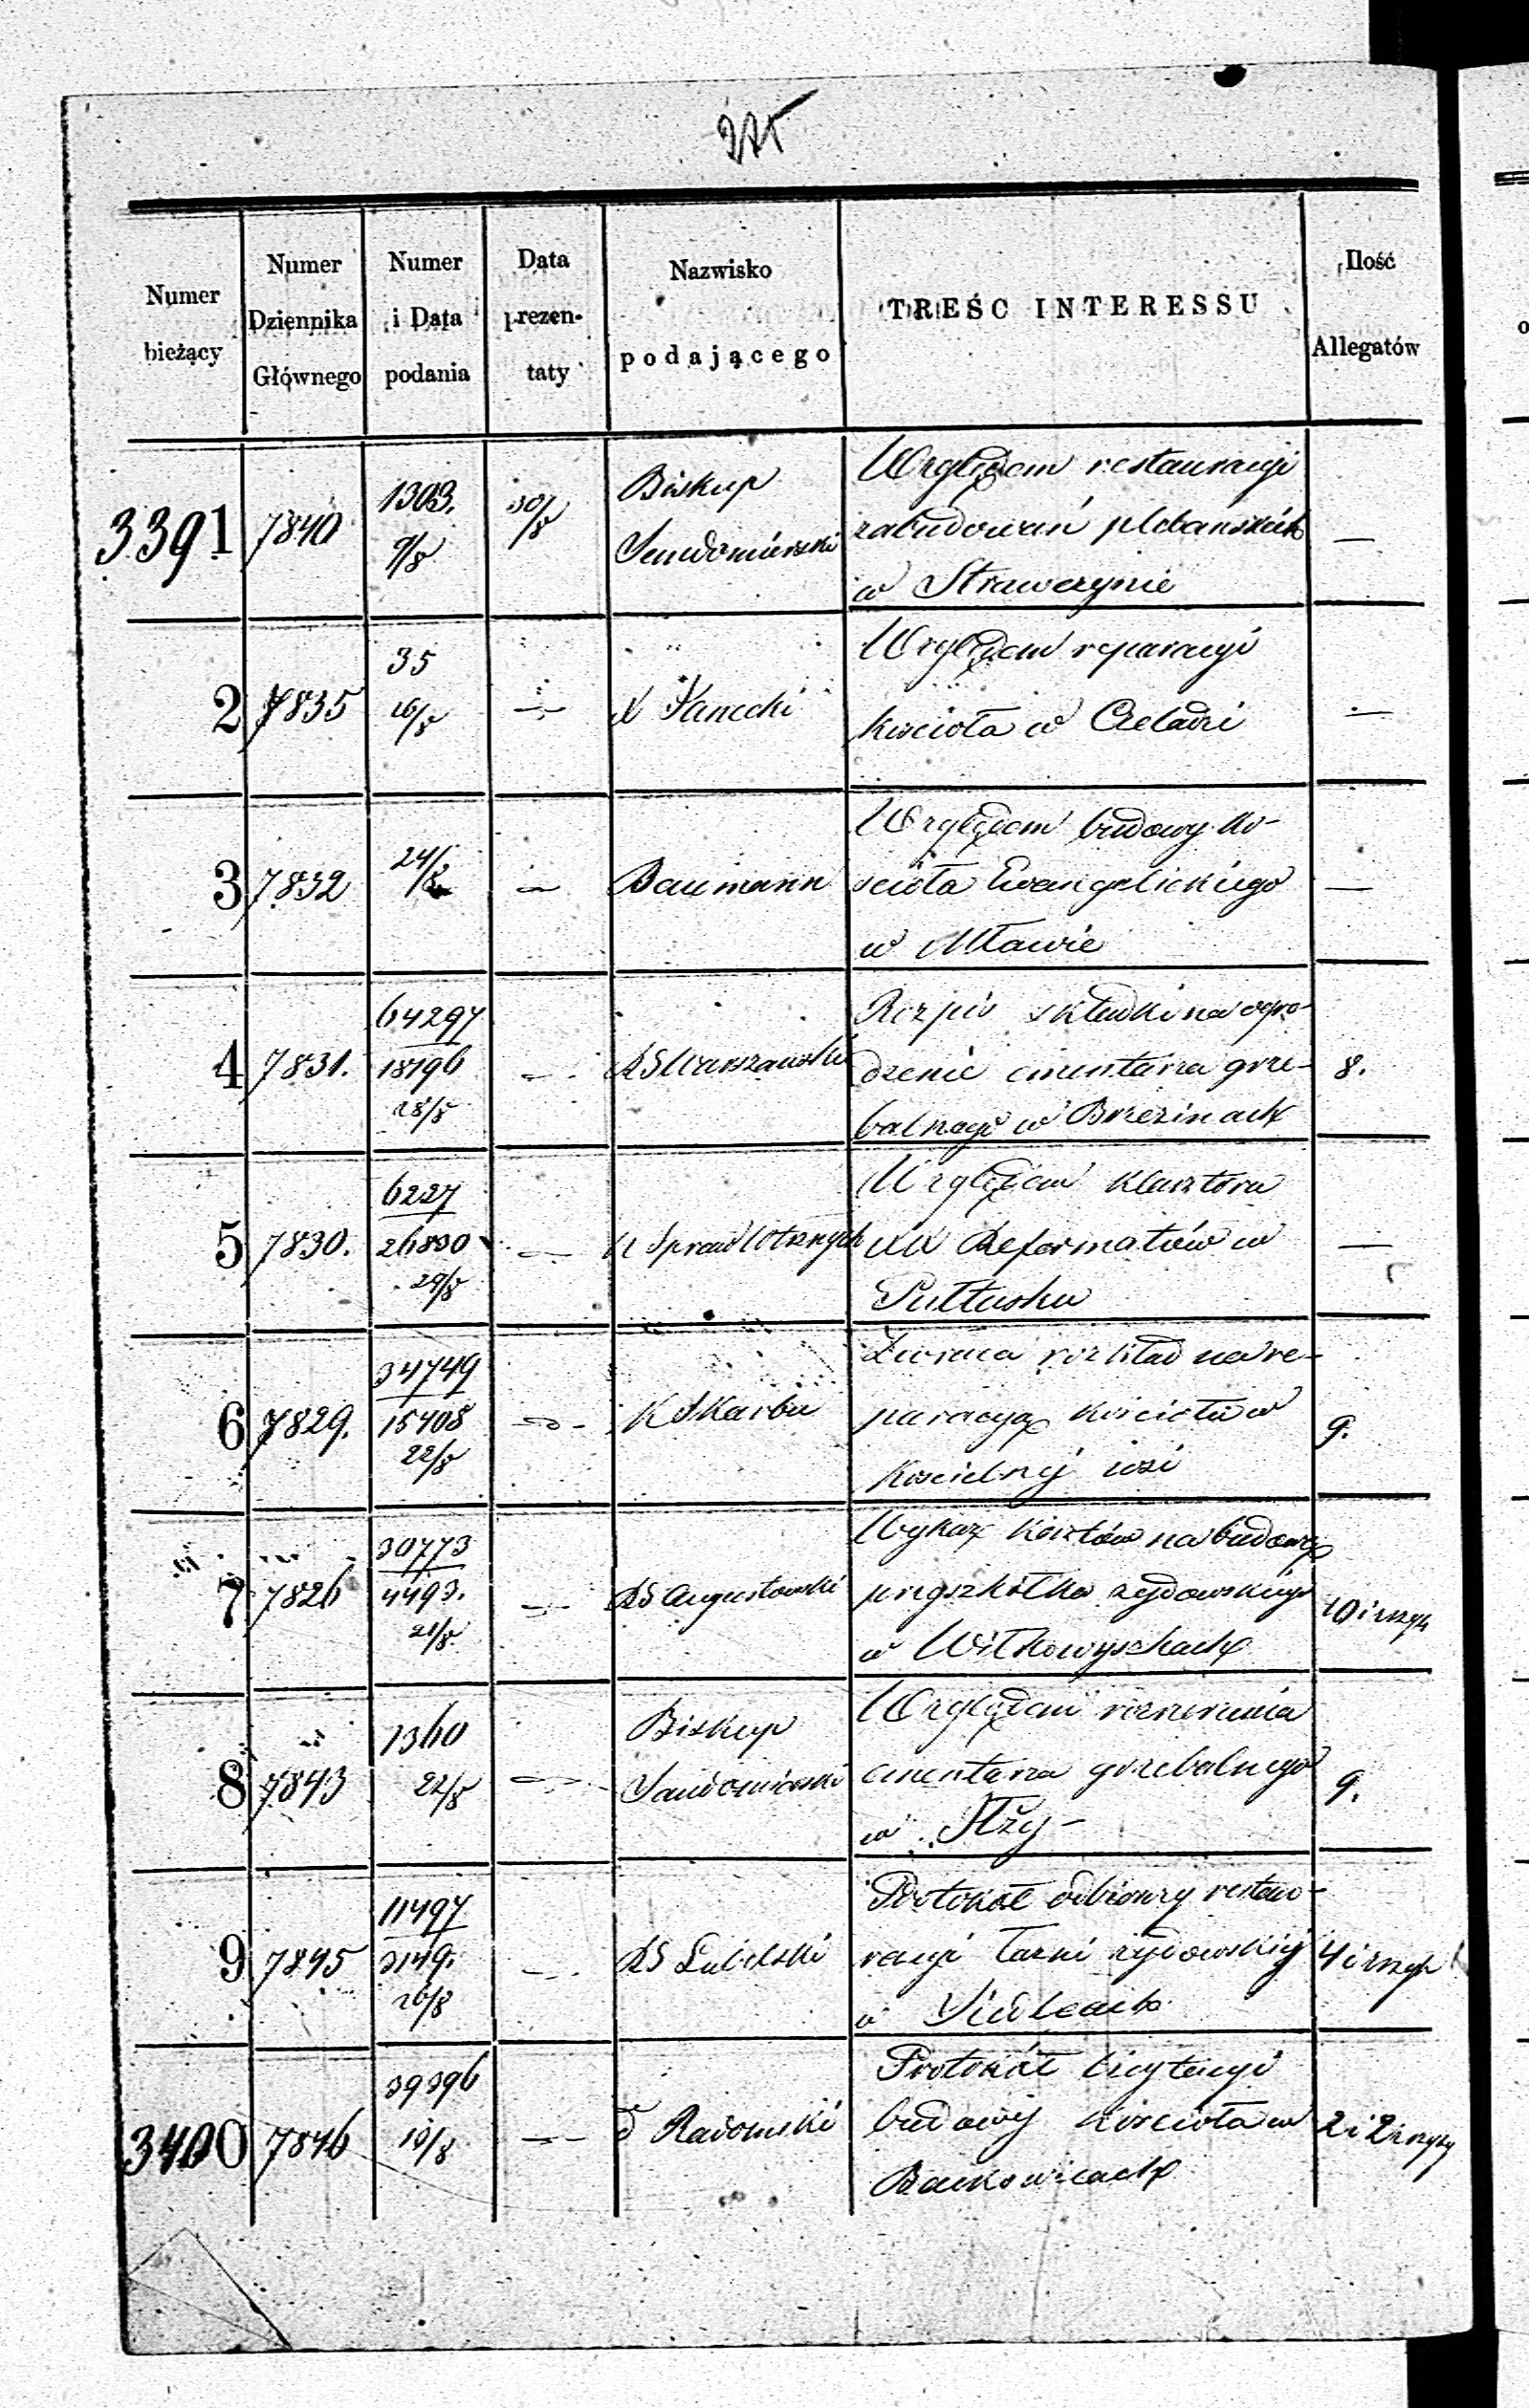 275
Numer bieżący
Numer Dziennika Głównego
Numer i Data podania
Data prezen- taty
Nazwisko podającego
TREŚĆ INTERESSU
Ilość Allegatów
3391
7840
1303.
9/8
30/8
Biskup
Sandomierski
Względem restauracyi
zabudowań plebańskich
w Strawczynie
—
2
7835
35
16/8
—
X Janecki
Względem reparacyi
kościoła w Czeladzi
—
3
7832
24/8
—
Baumann
Względem budowy ko-
ścioła Ewangelickiego
w Mławie
—
4
7831.
64297
18196
28/8
—
RG Warszawski
Rozpis składki na ogro-
dzenie cmentarza grze-
balnego w Brzezinach
8.
5
7830.
6227
26830
29/8
—
K Spraw Wtrznych
Względem klasztoru
XX Reformatów w
Pułtusku
—
6
7829.
34749
15408
22/8
—
K Skarbu
Zwraca rozkład na re-
paracyą kościoła w
Kościelnej wsi
9.
7
7826
30773
4493.
21/8
—
RG Augustowski
Wykaz kosztów na budowę
przyszkółka żydowskiego
w Wiłkowyszkach
10 i rszyt
8
7843
1360
22/8
—
Biskup
Sandomierski
Względem rozszerzenia
cmentarza grzebalnego
w Iłży —
9.
9
7845
11497
3149.
26/8
—
RG Lubelski
Protokół odbiorczy restau-
racyi łaźni żydowskiej
w Siedlcach
4 i rszyt
3400
7846
39396
10/8
—
d Radomski
Protokół licytacyi
budowy kościoła w
Baćkowicach
2 i 2 rszyty